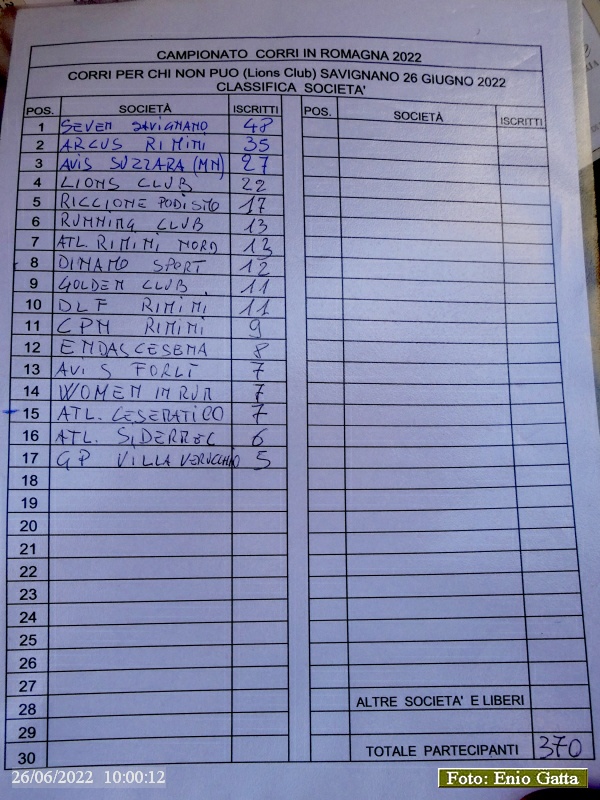 CAMPIONATO CORRI IN ROMAGNA 2022
CORRI PER CHI NON PUO (Lions Club) SAVIGNANO 26 GIUGNO 2022
CLASSIFICA SOCIETA'
POS. SOCIETÀ ISCRITTI POS. SOCIETÀ ISCRITTI
1 SEVEN SAVIGNANO 48
2 ARCUS RIMINI 35
3 AVIS SUZZARA (MN) 27
4 LIONS CLUB 22
5 RICCIONE PODISMO 17
6 RUNNING CLUB 13
7 ATL. RIMINI NORD 13
8 DINAMO SPORT 12
9 GOLDEN CLUB 11
10 DLF RIMINI 11
11 CPM RIMINI 9
12 ENDAS CESENA 8
13 AVIS FORLÌ 7
14 WOMEN IN RUN 7
15 ATL. CESENATICO 7
16 ATL. 6
17 GP VILLA VERUCCHIO 5
18
19
20
21
22
23
24
25
26
27
28 ALTRE SOCIETA' E LIBERI
29
30 TOTALE PARTECIPANTI 370
26/06/2022 10:00:12
Foto: Enio Gatta